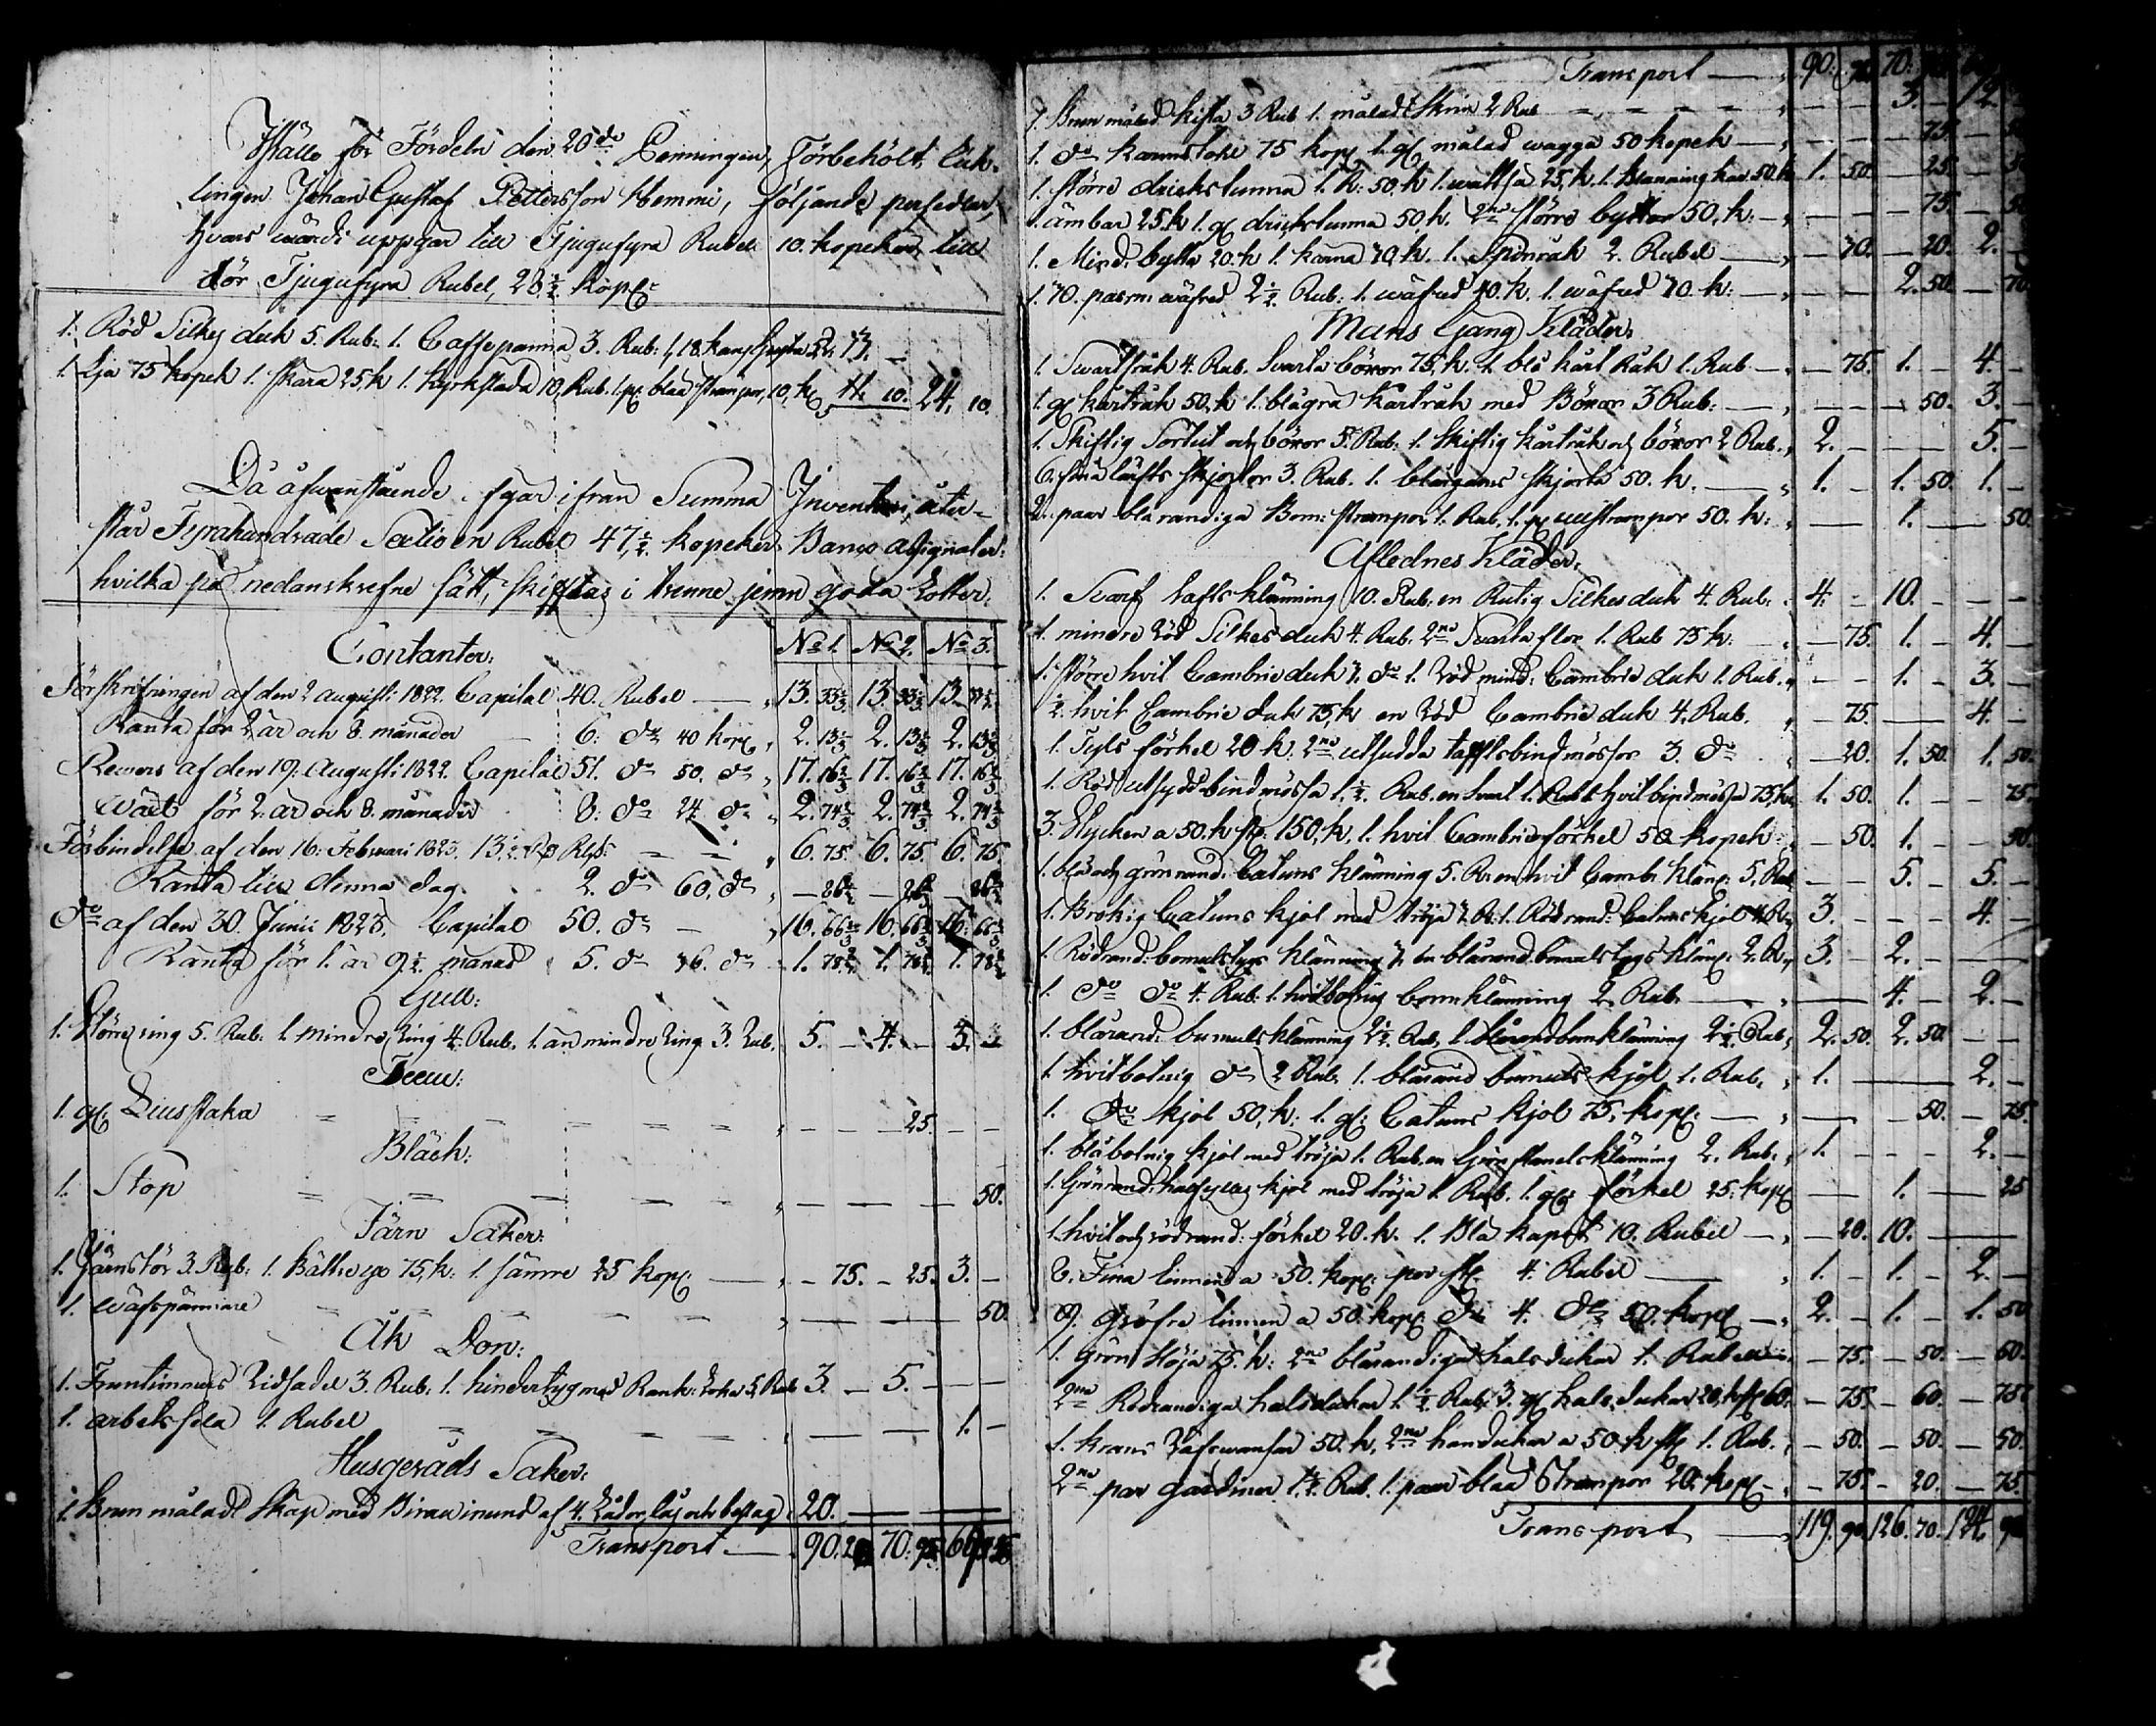 Iställe för Fördeln den 20de Penningen, Förbehölt Enk-
lingen Johan Gustaf Pettersson Hemmi, följande persedlar,
hvars wärde uppgar till Tjugufyra Rubel 10. kopeker till
för Tjugufyra Rubel, 23 1/2 Kop:
1. Röd Silkes duk 5. Rub: 1. Caffepanna 3. Rub: 13. —
1. Lja 75 kopek 1. skara 25, k 1. Kyrkslada 10, Rub. 1. pr blaa strumpor, 10, k 11. 10. 24. 10.
Då åfwanstående afgar ifran Summa Inventarii, åter-
står Fyrahundrade Sextio en Rubel 47 1/2 kopeker Banco Assignater:
hvilka på nedanskrefne sätt, skiftas i trenne jemn goda Lotter.
Contanter: No 1. No 2. No 3.
Förskrifningen af den 2 augusti 1822. Capital 40. Rubel — 13. 33 1/3 13. 33 1/3 13. 33 1/3
Ranta för 2 ar och 8. månader 6. do 40 kop. 2. 13 1/3 2. 13 1/3 2. 13 1/3
Revers af den 19. Augusti 1822. Capital 51. do 50. do 17. 16 2/3 17. 16 2/3 17. 16 2/3
för 2. ar och 8. månader 8. do 24. do 2. 74 2/3 2. 74 2/3 2. 74 2/3
Förbindelse af den 16. Februari 1823. 6. 75. 6. 75. 6. 75.
Ranta till denna dag 2. do 60. do
do af den 30. Junii 1823. Capital 50. do — 16. 66 2/3 16. 66 2/3 16. 66 2/3
Ranta för 1. ar 9 1/2 manad 5. do 36. do 1. 78 2/3 1. 78 2/3 1. 78 2/3
Gull:
1. Större ring 5. Rub. 1. mindre Ring 4. Rub. 1. än mindre Ring 3. Rub. 5. — 4. — 3. —
Tenn:
1. gl: Liusstaka 25.
Bläck:
1. Stop 50.
Järn Saker:
1. Järnstör 3. Rub: 1. Bältesyxe 75, k: 1. sämre 25 kop: — 75. — 25. 3. —
1. wäfspännare 50.
Åk Don:
1. Fruntimmers Ridsadel 3. Rub: 1. hindertyg med 5. Rub 3. — 5. —
1. arbets sela 1. Rubel 1. —
Husgeråds Saker:
1. Brun måladt Skåp med inund af 4. Lådor, lås och beslag: 20. —
Transport — 90. 70. 95.
Transport — 90. 70.
1. Brun målad kista 3 Rub 1. måladt Skrin 2 Rub 3. 2.
1. do karmstohl 75 kop: 1. gl målad wagga 50 kopek — 75. —
1. större drickstunna 1. R: 50, k 1. 25, k. 1. 50. k 1. 50. 25. —
1. ämbar 25. k 1. gl drickstunna 50, k. 2ne större byttor 50, k: — 75.
1. Mind: bytta 20. k 1. kanna 70, k. 1. Spinråk 2. Rubel — 70. — 20. 2. —
1. 70. wäfred 2 1/2 Rub: 1. wäfred 70. k: — 2. 50. — 70.
Mans Gang Kläder:
1. Swart råk 4. Rub. Svarta böxor 75, k. 1. blå kårt Råk 1. Rub — 75. 1. — 4. —
1. gl kårtråk 50, k 1. blågra kårtråk med Böxor 3 Rub: — 50. 3. —
1. Skiftig Sortut och böxor 5. Rub: 1. Skiftig kårtråk och böxor 2 Rub. 2. — 5. —
6. fina läfts skjortor 3. Rub. 1. blaagarns skjorta 50. k. — 1. — 1. 50. 1. —
2. paar blårandiga Bom: strumpor 1. Rub, 1. pr ullstrumpor 50. k: — 1. — 50.
Aflednes Kläder:
1. Svart tafts klänning 10. Rub: en Rutig Silkes duk 4. Rub: 4. — 10. —
1. mindre Röd Silkes duk 4. Rub. 2ne Svarta flor 1. Rub 75 k: — 75. 1. — 4. —
1. större hvit Cambric duk 3. do 1. Röd mind: Cambric duk 1. Rub. — 1. — 3. —
1/2. hvit Cambric duk 75, k en Röd Cambric duk 4. Rub. — 75. — 4. —
1. Tyls förkel 20 k: 2ne utsudda taftsbindmössor 3. do — 20. 1. 50. 1. 50.
1. Röd utsydd bindmössa 1 1/2. Rub. en Svart 1. Rub 1. hvit bindmössa 75, k 1. 50. 1. — 75.
3. Stycken a 50. k st: 150, k. 1. hvit Cambricförkel 50 kopek — 50. 1. — 50.
1. blå och grönrand: Catuns klänning 5. R: en hvit Camb: kläng: 5. Rub — 5. — 5. —
1. Brokig Catuns kjol med tröja 3. R: 1. Rödrand: Catuns kjol 4 R: 3. — 4. —
1. Rödrand: bomulstygs klänning 3. en blårand: bomulstygs kläng: 2. R. 3. — 2. —
1. do do 4. Rub: 1. hvitbottnig bom klänning 2. Rub. — 4. — 2. —
1. blårand: bomuls klänning 2 1/2. Rub, 1. blårand bom klänning 2 1/2 Rub 2. 50. 2. 50. —
1. hvitbotnig do 2 Rub. 1. blårand bomuls kjol 1. Rub. 1. — 2. —
1. do kjol 50, k: 1. gl: Catuns kjol 75, kop: — 50. — 75.
1. blåbotnig kjol med tröja 1. Rub. en klänning 2. Rub: 1. — 2. —
1. Grönrand: halfyllen kjol med tröja 1. Rub. 1. gl: förkel 25. kop: — 1. — 25
1. hvit och rödrand: förkel 20. k. 1. Blå kapot 10. Rubel — 20. 10. —
8. Fina linnen a 50. kop: per st: 4. Rubel — 1. — 1. — 2. —
9. gröfre linnen a 50. kop: do 4. do 50. kop: — 2. — 1. — 1. 50
1. grön tröja 75. k: 2ne blårandiga halsdukar 1. Rubel — 75. — 50. — 60.
2ne Rödrandiga halsdukar 1 1/2. Rub, 3. gl halsdukar 20, kop 60. — 75. — 60. — 75.
1. krans 50. k, 2ne handukar a 50. k st 1. Rub. — 50. — 50. — 50.
2ne par gardiner 1 1/2. Rub. 1. paar blaa Strumpor 20. kop: — 75. — 20. — 75.
Transport — 119. 90. 126. 70. 124.